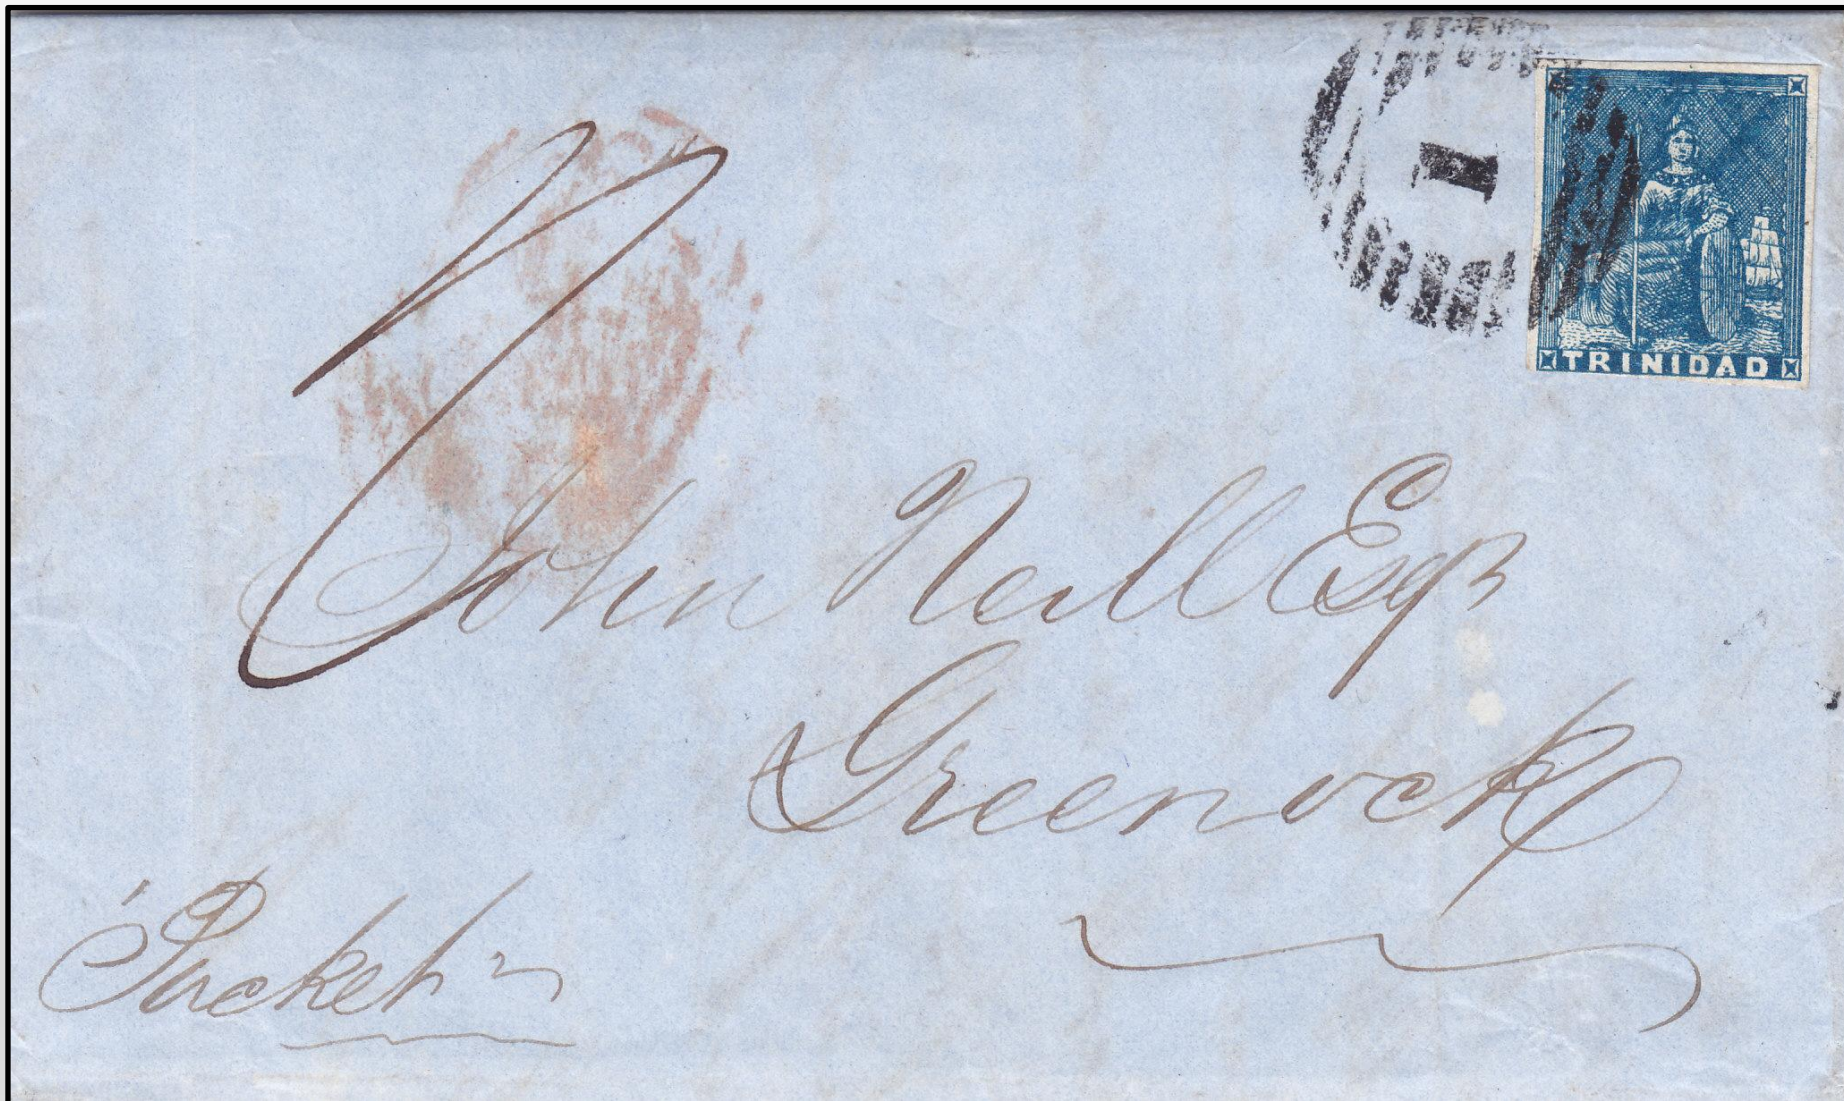 1
TRINIDAD
John Neill Esqr
Greenock
Packet